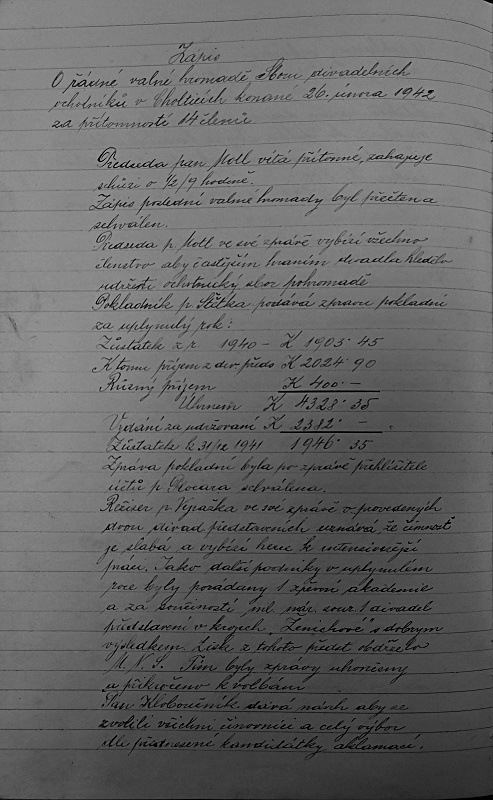 Zápis
O řádné valné hromadě Sboru divadelních
ochotníků v Cholticích konané 26. února 1942
za přítomnosti 14 členů
Předseda pan Moll vítá přítomné, zahajuje
schůzi o 1/2 9 hodině.
Zápis poslední valné hromady byl přečten a
schválen.
Předseda p. Moll ve své zprávě vybízí všechno
členstvo aby častějším hraním divadla hledělo
udržeti ochotnický sbor pohromadě
Pokladník p. Štětka podává zprávu pokladní
za uplynulý rok:
Zůstatek z r. 1940 – K 1905·45
K tomu příjem z div. předs. K 2024·90
Různý příjem K 400·–
Úhrnem K 4328·35
Vydání za udržování K 2382·–
Zůstatek k 31/12 1941 1946·35
Zpráva pokladní byla po zprávě přehlížitele
účtů p. schválena.
Režiser p. ve své zprávě o provedených
dvou divad. představeních uznává, že činnost
je slabá a vybízí herce k intensivnější
práci. Jako další podniky v uplynulém
roce byly pořádány 1 akademie
a za součinnosti ml. nár. sour. 1 divadel.
představení v krojích „Ženichové" s dobrým
výsledkem. Zisk z tohoto předst. obdrželo
M. N. S. Tím byly zprávy ukončeny
a přikročeno k volbám
Pan Kloboučník dává návrh aby se
zvolili všichni činovníci a celý výbor
dle přednesené kandidátky aklamací.